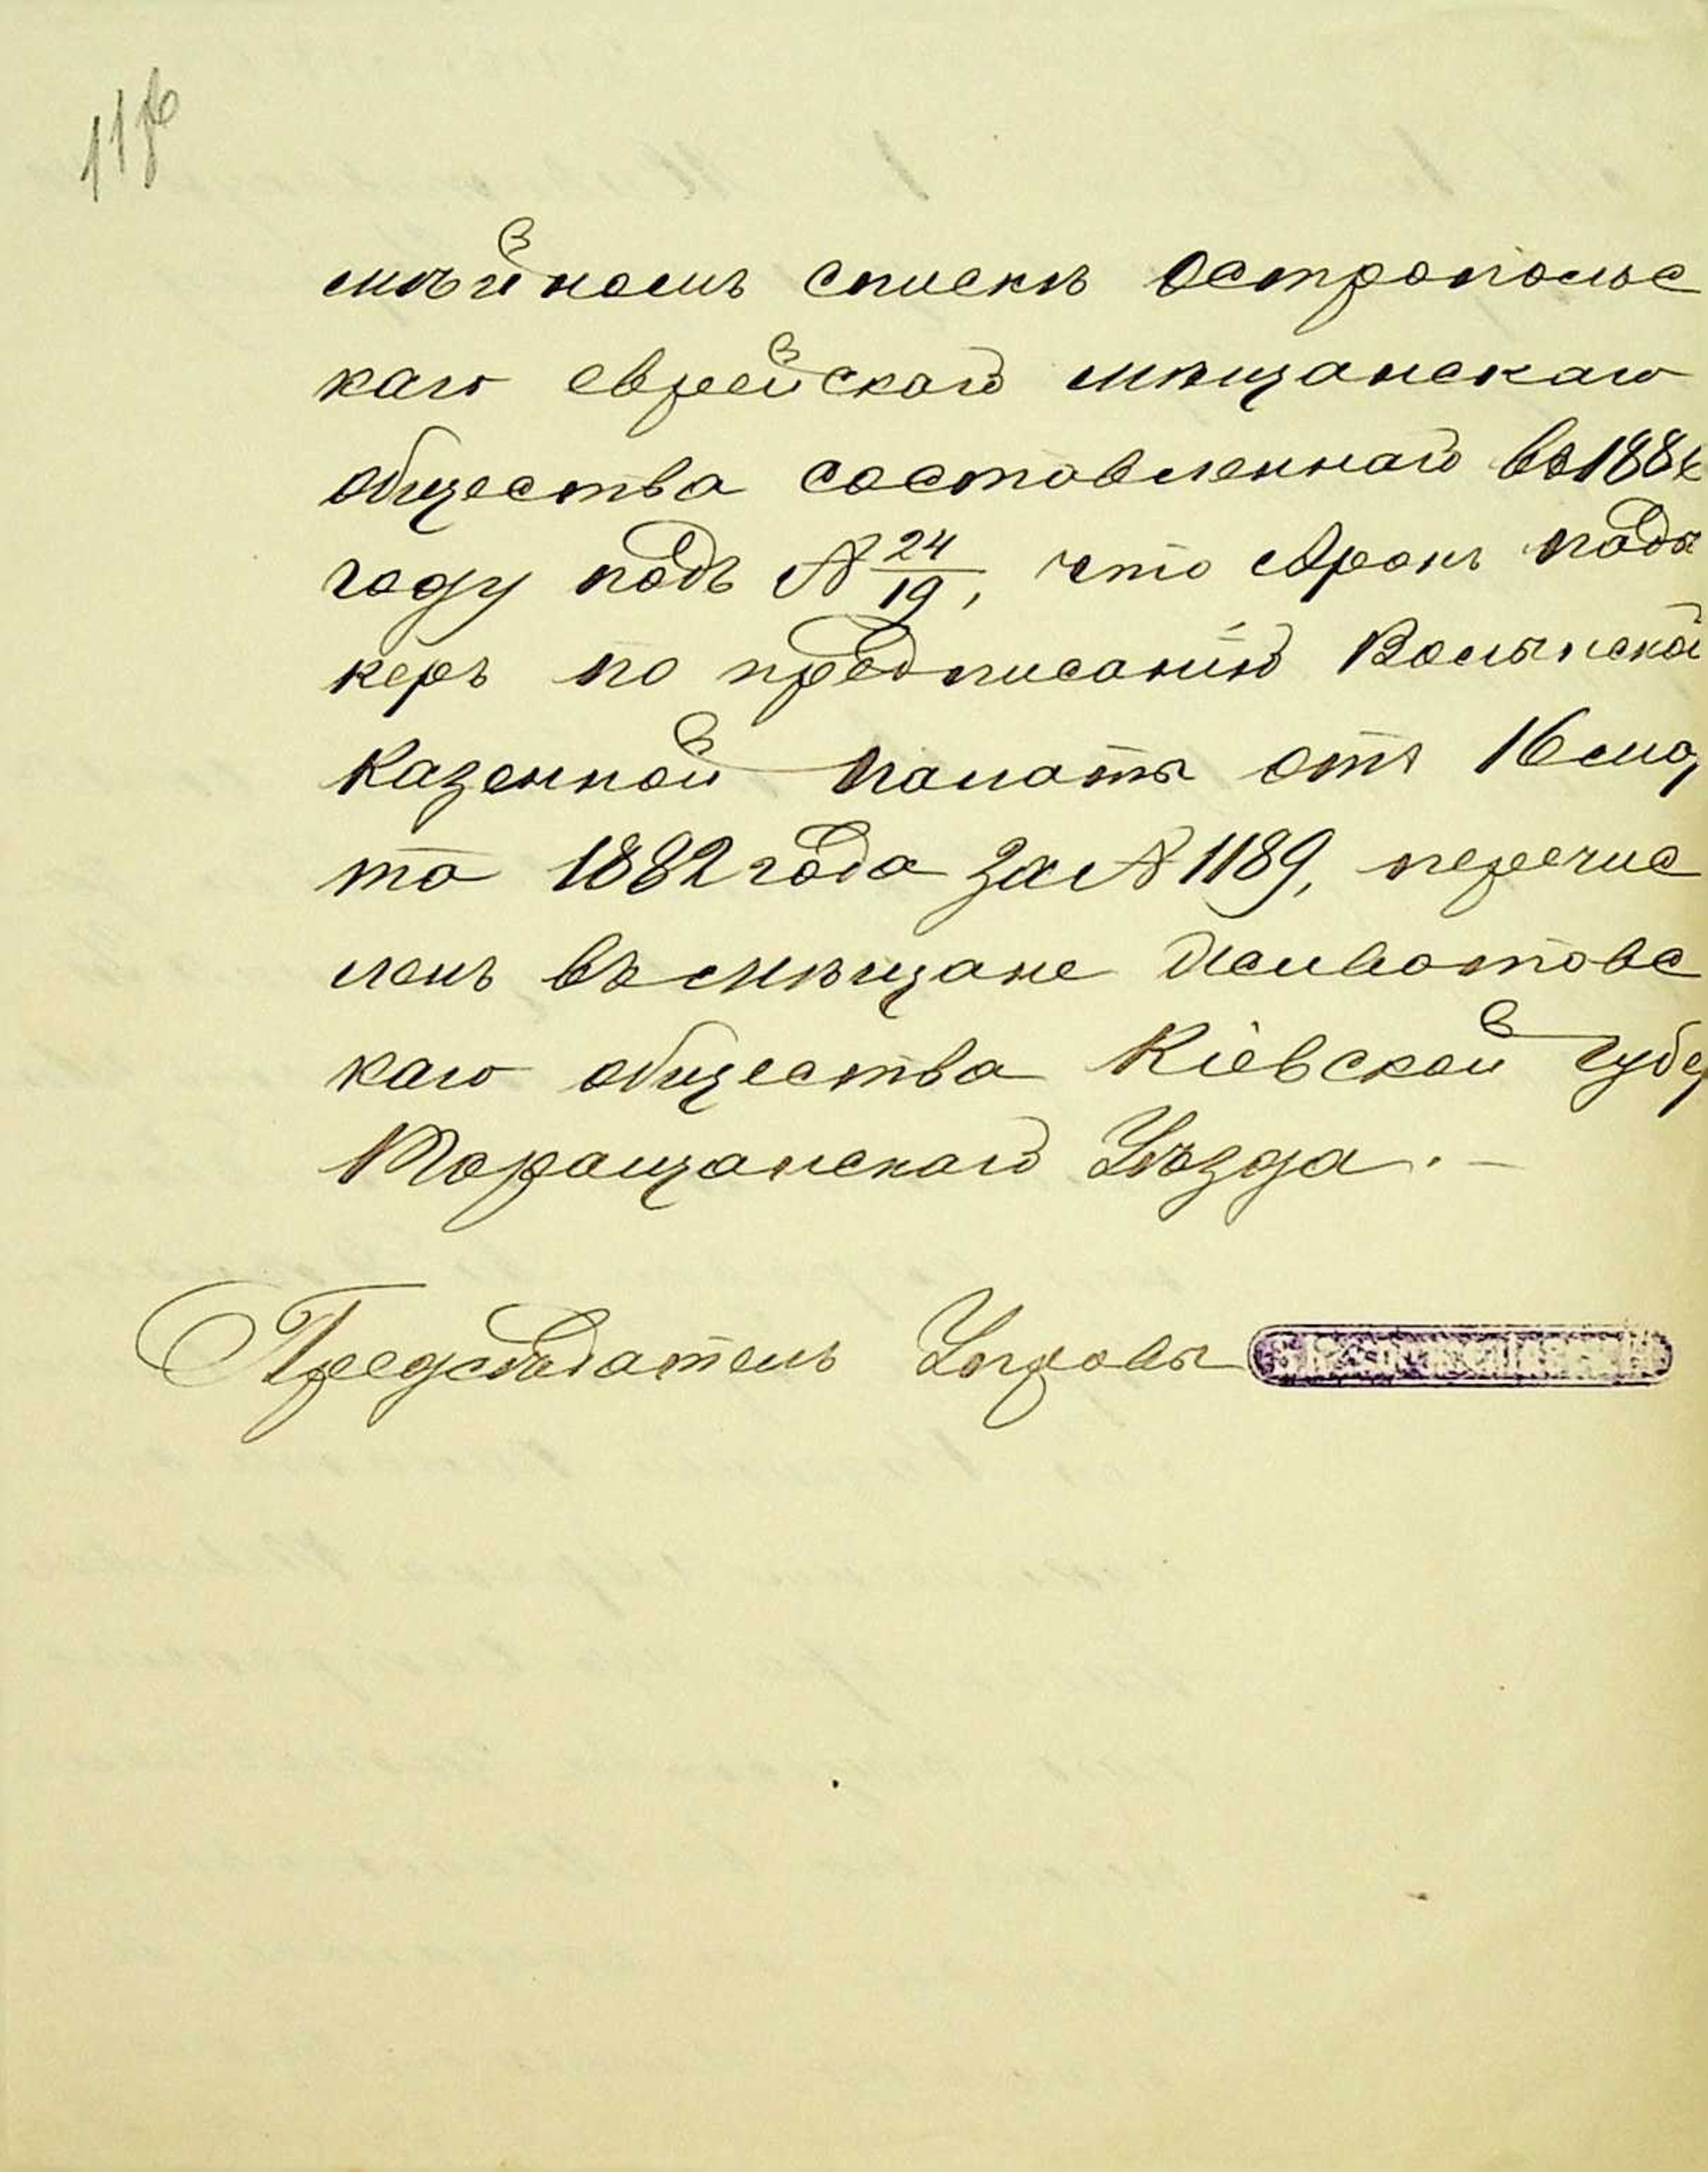 мѣйномъ спискѣ Острополс
каго еврейскаго мѣщанскаго
общества составленнаго въ 188
году подъ № 24/19, что Аронъ Пада
керъ по предписанію Волынской
Казенной Палаты отъ 16 мар
та 1882 года за № 1189, перечис
ленъ въ мѣщане
каго общества Кіевской губер
Таращанскаго Уѣзда. —
Предсѣдатель Управы